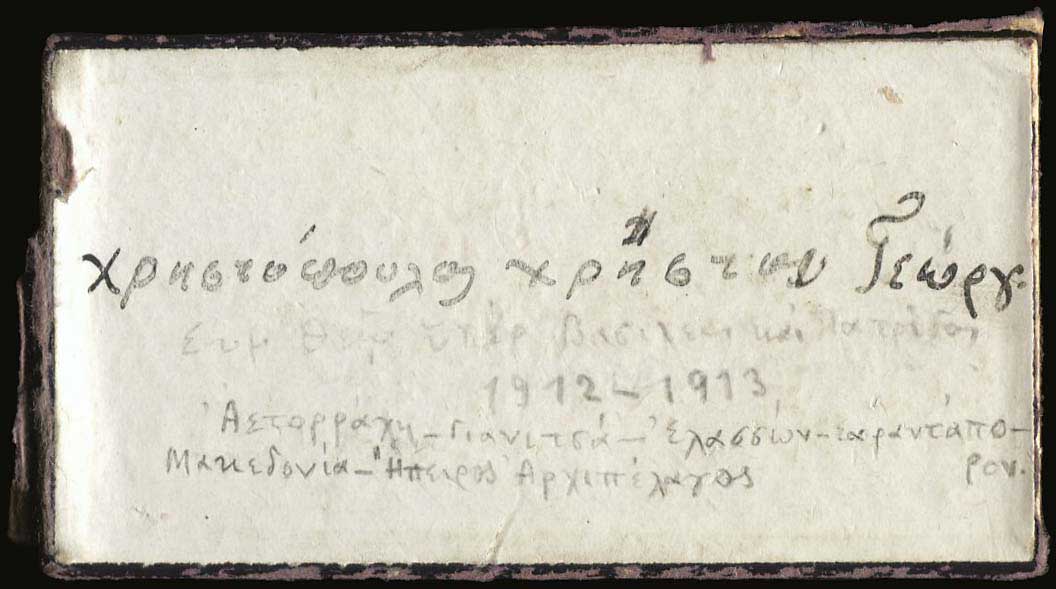 Χρηστόπουλος Χρήστου Γεώργ.
ὑπέρ Βασιλέως καί Πατρίδος
1912-1913
Ἀετορράχη-Γιανιτσά-Ἐλασσών-Σαραντάπο-
Μακεδονία-Ἤπειρος Ἀρχιπέλαγος ρον.